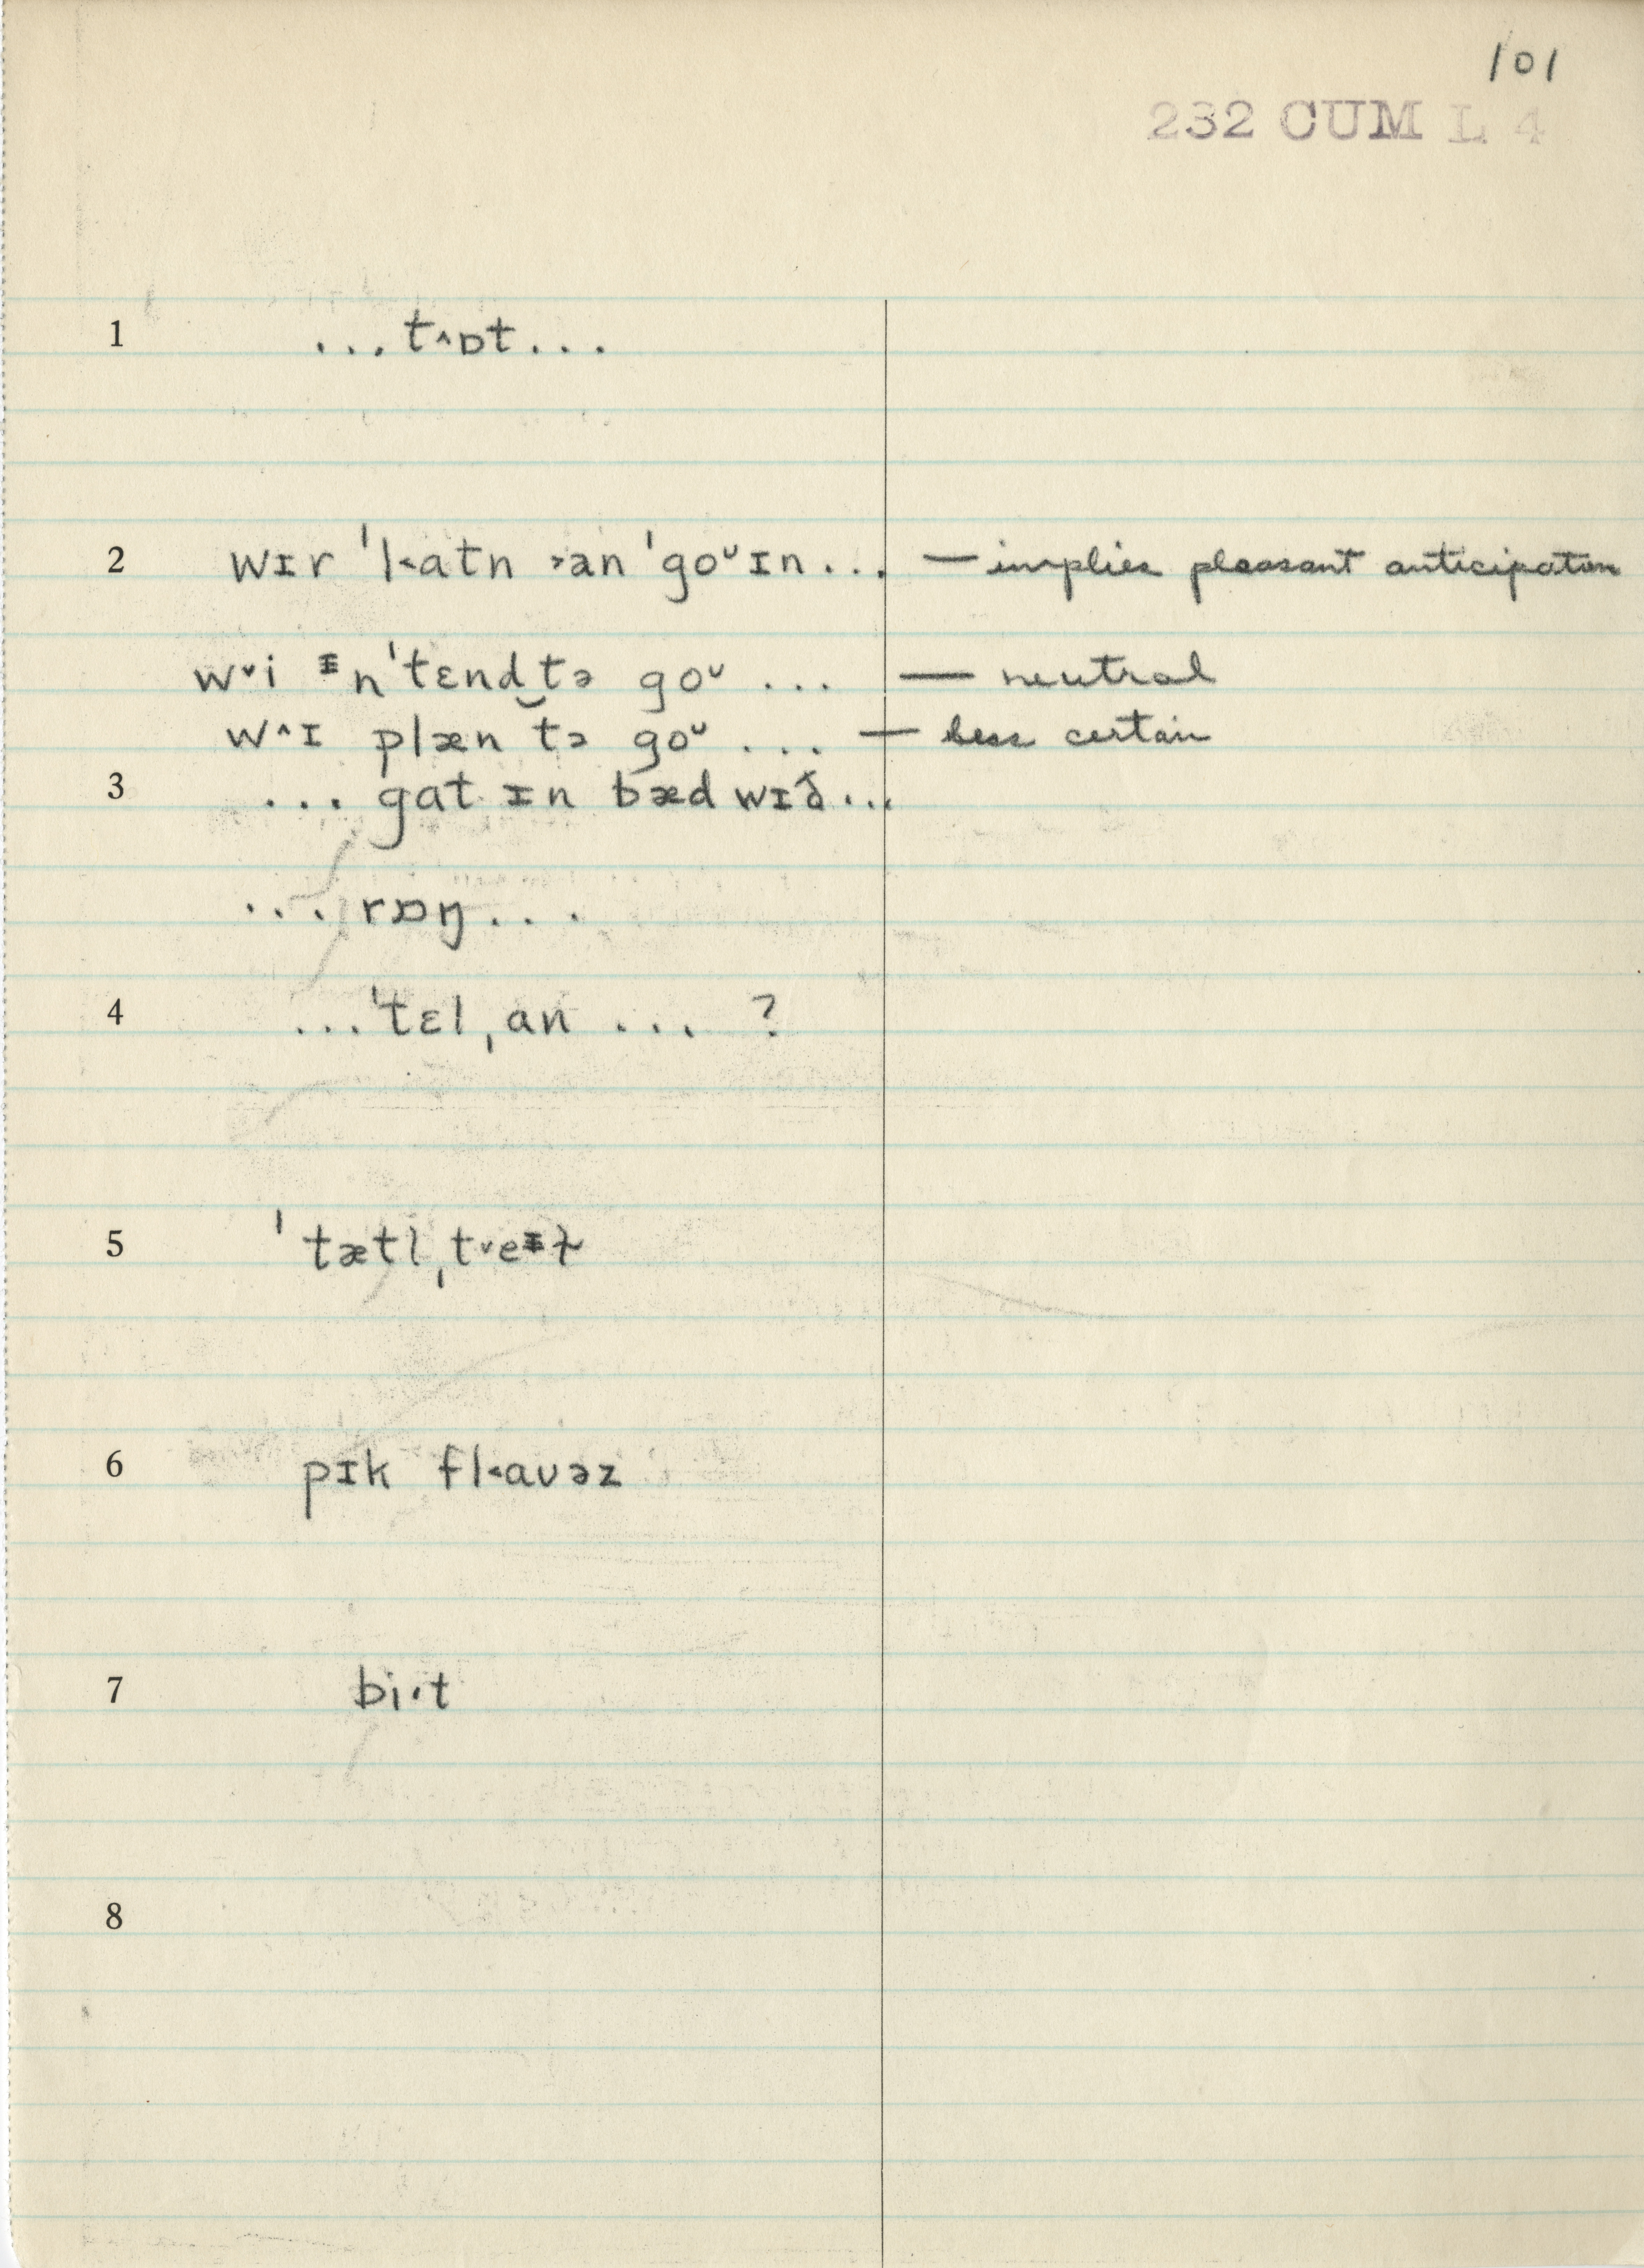 101
232 CUM L 4
1 ...t^ɒt...
2 wɪr ˈk˂atn ˃an ˈgoᵘɪn... — implies pleasant anticipation
w˅i ᵻnˈtɛnd‿tə goᵘ ... — neutral
w^ɪ plæn tə goᵘ ... — less certain
3 ... gat ɪn bæd wɪð...
... rɒŋ...
4 ...ˈtɛlˌan ... ?
5 ˈtætlˌt˅eᵻɫ
6 pɪk fl˂aʊəz
7 bi·t
8